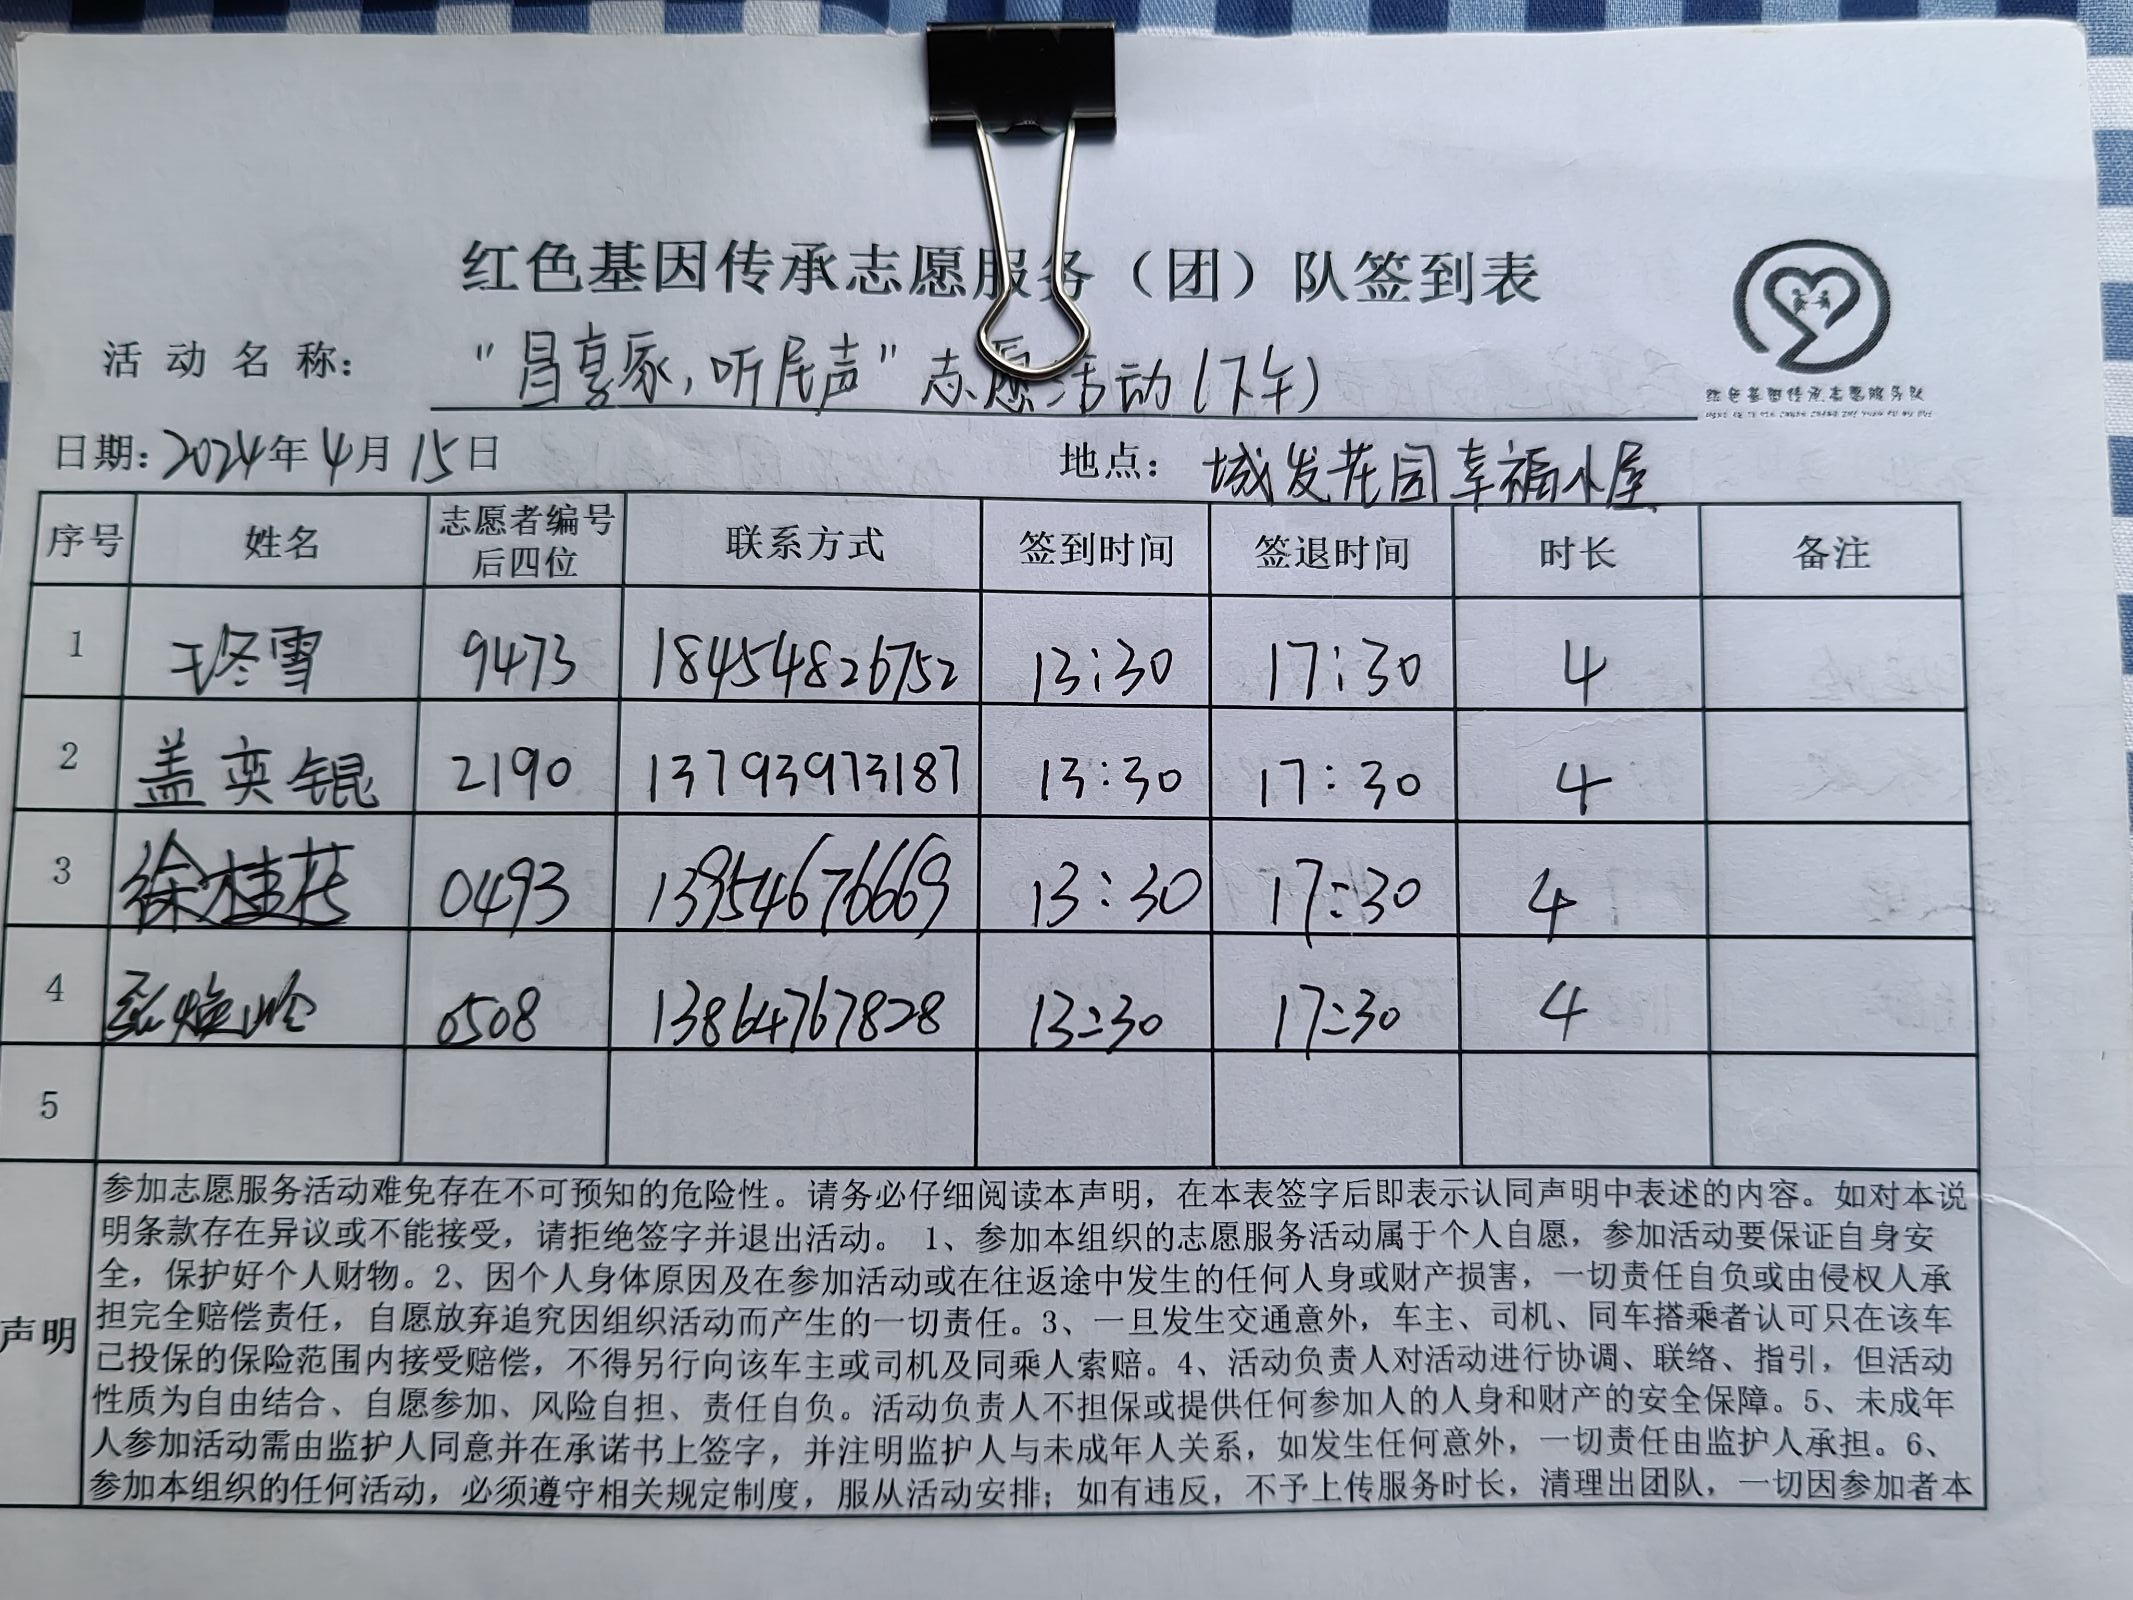 红色基因传承志愿服务（团）队签到表
活动名称："昌享家,听民声"志愿活动(下午)
红色基因传承志愿服务队
日期:2024年4月15日 地点：城发花园幸福小屋
序号 姓名 志愿者编号后四位 联系方式 签到时间 签退时间 时长 备注
1 王冬雪 9473 18454826752 13:30 17:30 4
2 盖奕锟 2190 13793973187 13:30 17:30 4
3 徐桂花 0493 13954676669 13:30 17:30 4
4 0508 13864767828 13:30 17:30 4
5
声明
参加志愿服务活动难免存在不可预知的危险性。请务必仔细阅读本声明，在本表签字后即表示认同声明中表述的内容。如对本说
明条款存在异议或不能接受，请拒绝签字并退出活动。 1、参加本组织的志愿服务活动属于个人自愿，参加活动要保证自身安
全，保护好个人财物。2、因个人身体原因及在参加活动或在往返途中发生的任何人身或财产损害，一切责任自负或由侵权人承
担完全赔偿责任，自愿放弃追究因组织活动而产生的一切责任。3、一旦发生交通意外，车主、司机、同车搭乘者认可只在该车
已投保的保险范围内接受赔偿，不得另行向该车主或司机及同乘人索赔。4、活动负责人对活动进行协调、联络、指引，但活动
性质为自由结合、自愿参加、风险自担、责任自负。活动负责人不担保或提供任何参加人的人身和财产的安全保障。5、未成年
人参加活动需由监护人同意并在承诺书上签字，并注明监护人与未成年人关系，如发生任何意外，一切责任由监护人承担。6、
参加本组织的任何活动，必须遵守相关规定制度，服从活动安排；如有违反，不予上传服务时长，清理出团队，一切因参加者本